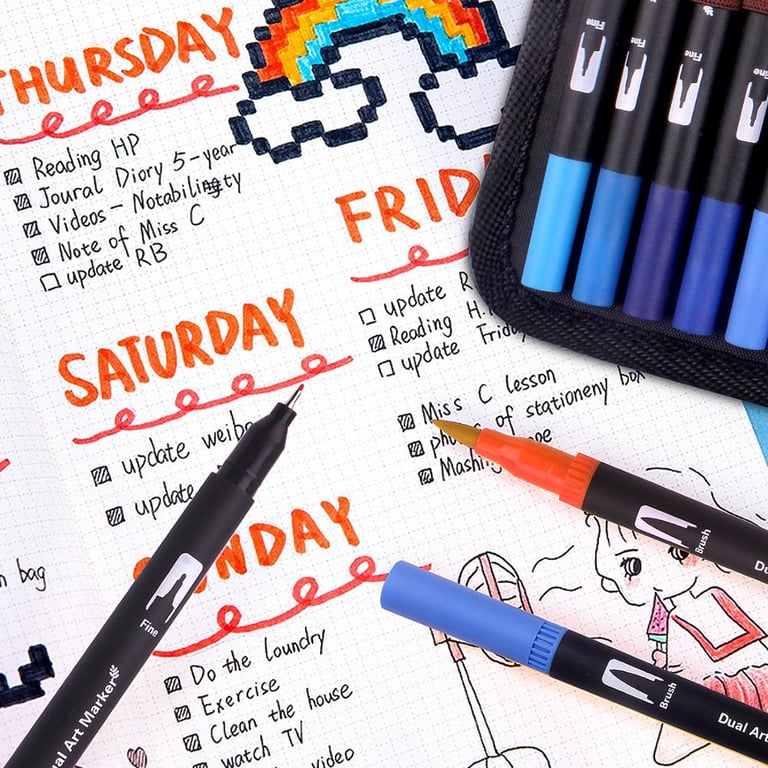 THURSDAY
Reading HP
Joural Diory 5-year
Videos - Notability
Note of Miss C
update RB
FRID
update R
Reading H.
update Friday
Miss C lesson
of stationeny box
SATURDAY
update weibo
update
NDAY
Do the loundry
Exercise
Clean the house
watch TV
video
bag
Fine
Fine
Fine
Fine
Fine
al Art Marker
Brush
Brush
Dual Art